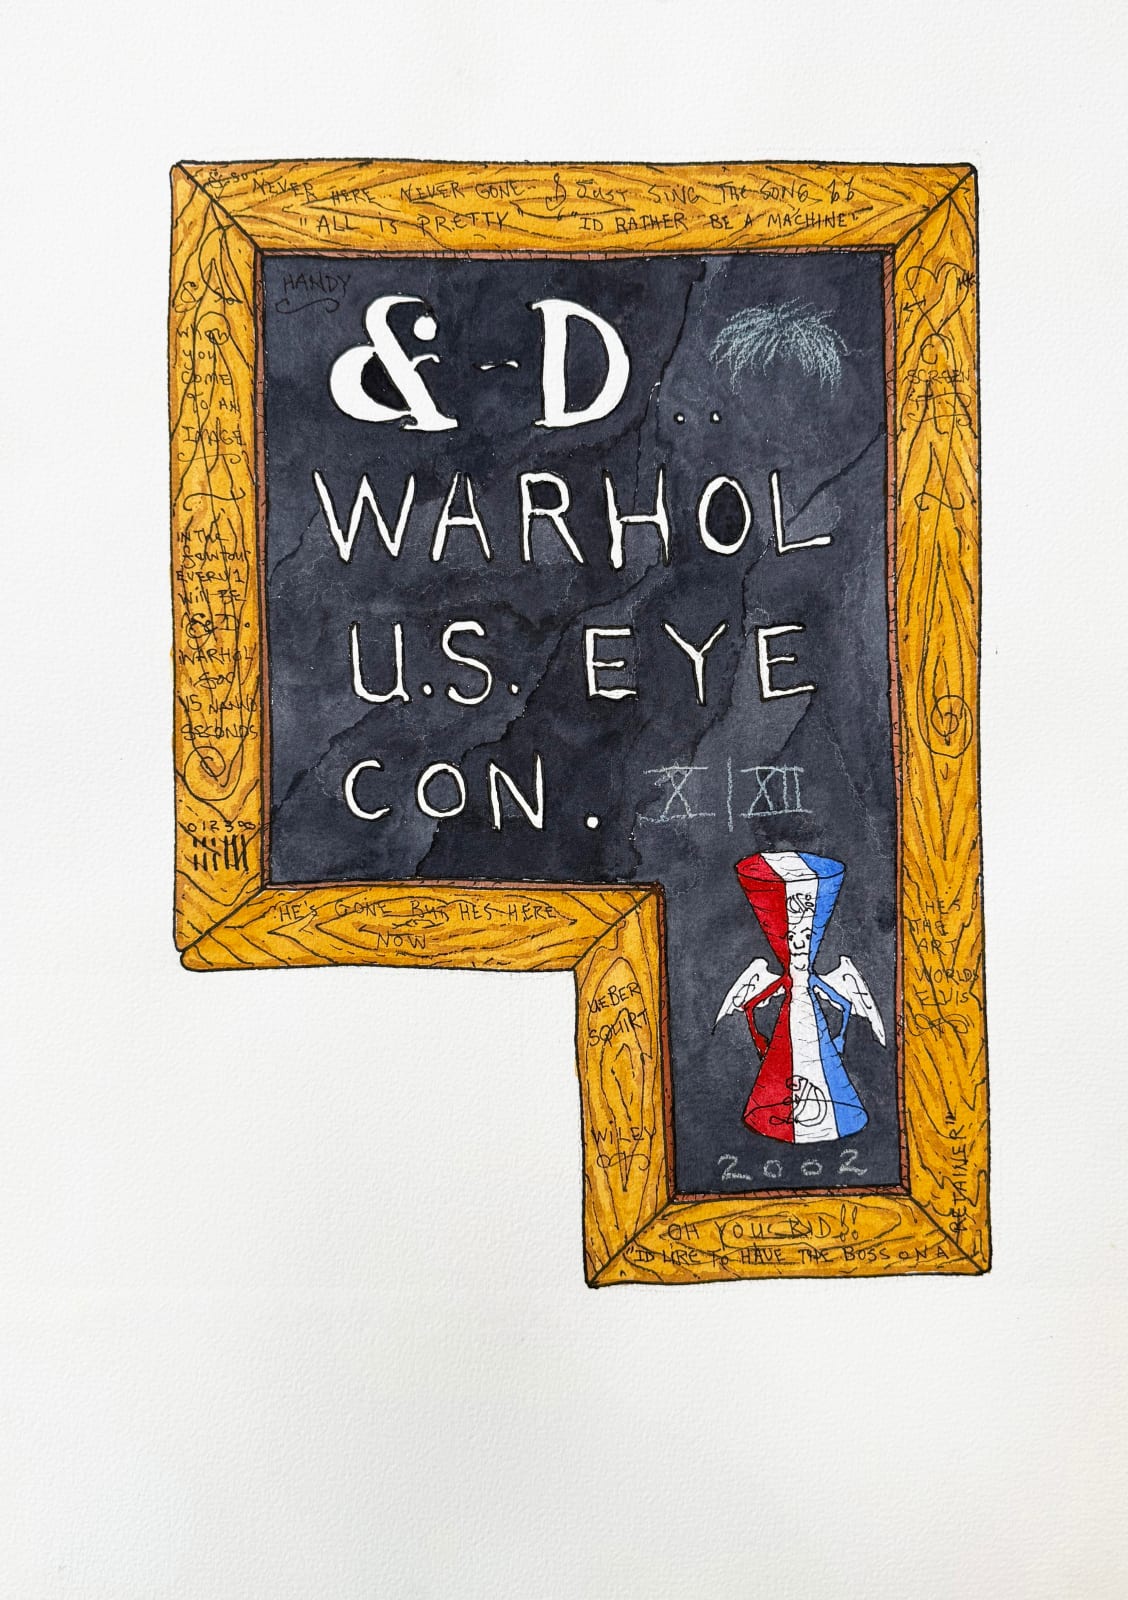 & SO
NEVER HERE NEVER GONE & JUST SING THE SONG
"ALL IS PRETTY" "I'D RATHER BE A MACHINE"
HANDY
& - D..
WARHOL
U.S. EYE
CON.
X|XII
2002
& SO
WHEN
YOU
COME
TO AN
IMAGE
IN THE
EVERY 1
WILL BE
&D.
WARHOL
FOR
15 NANNO
SECONDS
0 1 2 3
HE'S GONE BUT HES HERE
NOW
UEBER
SQUIRT
WILEY
OH YOU KID!!
"I'D LIKE TO HAVE THE BOSS ON A
RETAINER"
SCREEN
HE'S
THE
ART
WORLDS
ELVIS